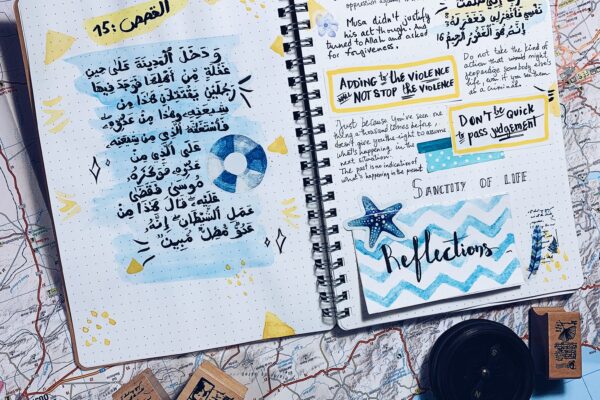 القصص :15
وَدَخَلَ ٱلْمَدِينَةَ عَلَىٰ حِينِ
غَفْلَةٍ مِّنْ أَهْلِهَا فَوَجَدَ فِيهَا
رَجُلَيْنِ يَقْتَتِلَانِ هَٰذَا مِن
شِيعَتِهِۦ وَهَٰذَا مِنْ عَدُوِّهِۦ
فَٱسْتَغَٰثَهُ ٱلَّذِى مِن شِيعَتِهِۦ
عَلَى ٱلَّذِى مِنْ
عَدُوِّهِۦ فَوَكَزَهُۥ
مُوسَىٰ فَقَضَىٰ
عَلَيْهِ قَالَ هَٰذَا مِنْ
عَمَلِ ٱلشَّيْطَٰنِ إِنَّهُۥ
عَدُوٌّ مُّضِلٌّ مُّبِينٌ
Musa didn't justify
his act though. And
turned to Allah and asked
for forgiveness.
نَفْسِى فَٱغْفِرْ لِى فَغَفَرَ لَهُۥٓ
إِنَّهُۥ هُوَ ٱلْغَفُورُ ٱلرَّحِيمُ 16
ADDING to the VIOLENCE
WILL NOT STOP the VIOLENCE
Do not take the kind of
action that would
jeopardize somebody else's
life, even if you
as a criminal.
Just because you've seen
thing a thousand times before,
doesn't give you the right to assume
what's happening in the
next situation.
The past is no indication of
what's happening in the present
DON'T be QUICK
to pass judgement
SANCTITY OF LIFE
Reflections